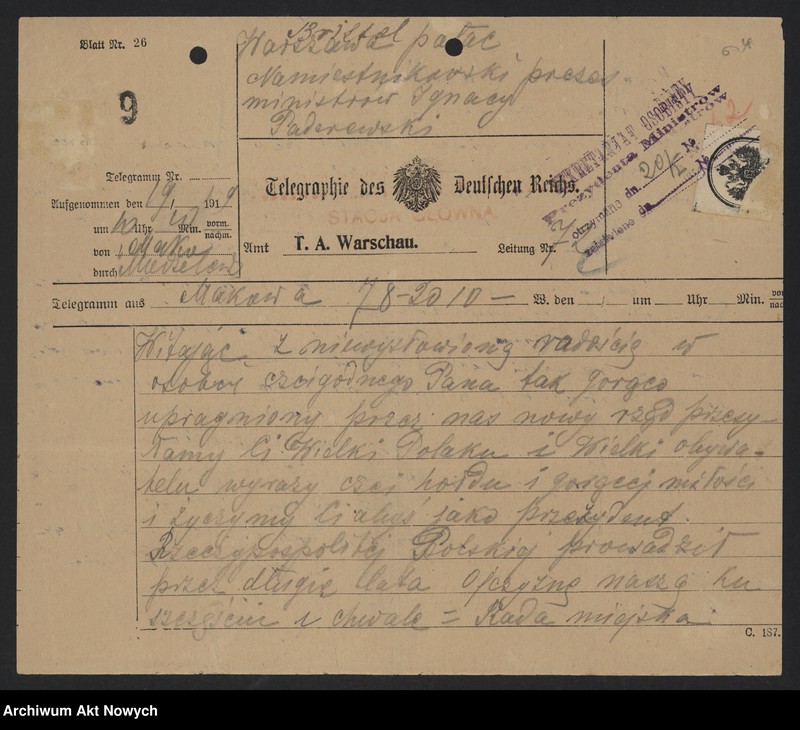 Blatt Nr. 26
9
Bristol
Warszawa pałac
Namiestnikowski prezes
ministrow Ignacy
Paderewski
SEKRETARIAT OSOBISTY
Prezydenta Ministrów
otrzymano dn. 20/I №
załatwiono dn. №
Telegramm Nr.
Aufgenommen den 19/1 1919
um Uhr Min. vorm. nachm.
von Mako
durch
Telegraphie des Deutschen Reichs.
STACJA GŁÓWNA
Amt T. A. Warschau.
Leitung Nr.
Telegramm aus Makowa 78-20 10 — W. den / um Uhr Min.
Witając z niewysłowioną radością w
osobie czcigodnego Pana tak gorąco
upragniony przez nas nowy rząd przesy-
łamy Ci Wielki Polaku i Wielki obywa-
telu wyrazy czci hołdu i gorącej miłości
i życzymy Ci abyś jako prezydent
Rzeczypospolitej Polskiej prowadził
przez długie lata Ojczyznę naszą ku
szczęściu i chwale = Rada miejska
C. 187.
Archiwum Akt Nowych